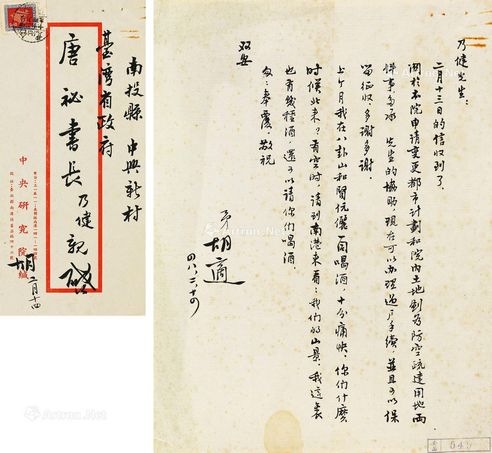 南投縣 中興新村
臺灣省政府
唐祕書長 乃健親啓
中央研究院緘
胡 二月十四
乃健先生：
二月十三日的信收到了。
關於本院申請變更都市計劃和院內土地劃為防空疏建用地兩
件事，多承 先生的協助，現在可以辦理過戶手續，並且可以保
留征收，多謝多謝。
上個月我在八卦山和賢伉儷一同喝酒，十分痛快。你們什麼
時候北來？有空時，請到南港來看看我們的山景。我這裏
也有幾種酒，還可以請你們喝酒。
匆匆奉覆，敬祝
双安
胡適
四八、二、十四
Artron.Net
Artron.Net